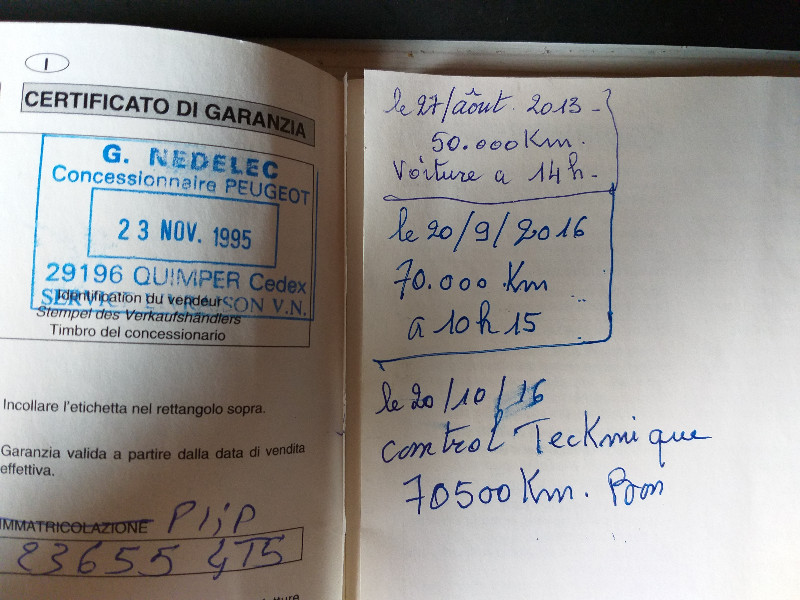 I
CERTIFICATO DI GARANZIA
G. NEDELEC
Concessionnaire PEUGEOT
23 NOV. 1995
29196 QUIMPER Cedex
Identification du vendeur
V.N.
Stempel des Verkaufshändlers
Timbro del concessionario
Incollare l'etichetta nel rettangolo sopra.
Garanzia valida a partire dalla data di vendita
effettiva.
IMMATRICOLAZIONE Plip
23655 4T5
le 27/aôut. 2013 -
50.000 Km.
Voiture a 14h -
le 20/9/2016
70.000 Km
a 10h15
le 20/10/16
control Tecknique
70500 Km. Bon